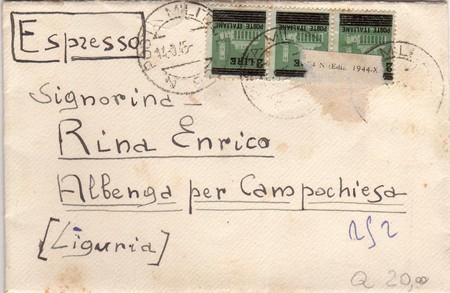 Espresso
POSTE ITALIANE
POSTE ITALIANE
POSTE ITALIANE
2 LIRE
1944-X
Signorina
Rina Enrico
Albenga per Campochiesa
[Liguria]
252
Q 20,00